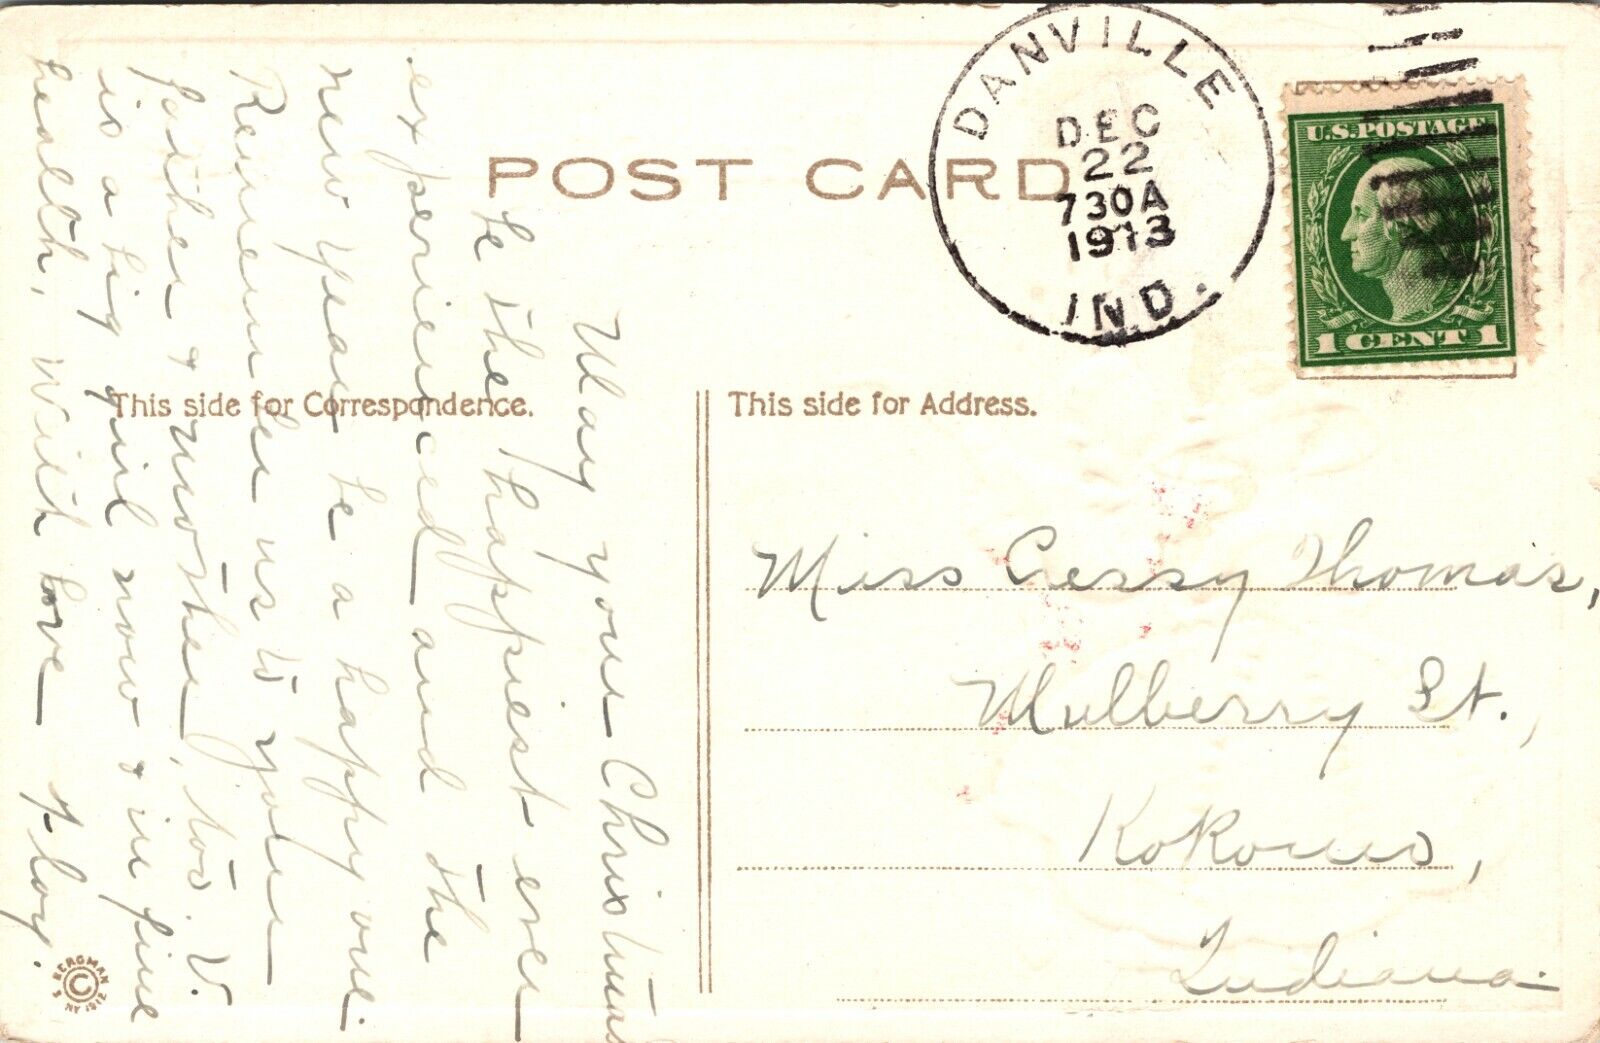 POST CARD
DANVILLE
DEC
22
730A
1913
IND.
U.S. POSTAGE
1 CENT 1
This side for Correspondence.
This side for Address.
May your Christmas
be the happiest ever
experienced and the
new year be a happy one.
Remember us to your
father & mother, too. V.
is a big girl now & in fine
health, With love Floy.
Miss Cressy Thomas,
Mulberry St.,
Kokomo,
Indiana.
S BERGMAN
©
NY 1912